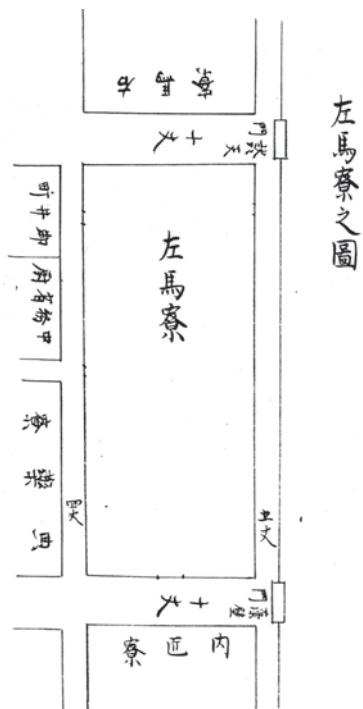 左馬寮之圖
右馬寮
談天門
十丈
左馬寮
御井町
中務省厨
典藥寮
四丈
五丈
藻壁門
十丈
内匠寮